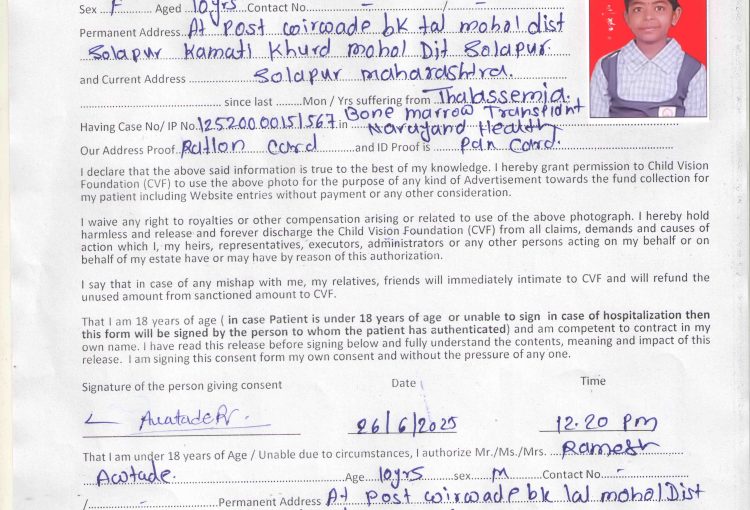 Sex F Aged 10yrs Contact No. - / -
Permanent Address. At Post wirwade bk tal mohol dist
Solapur Kamati Khurd mohol Djt Solapur
and Current Address Solapur maharashtra.
since last Mon / Yrs suffering from Thalassemia.
Bone marrow Transplant
Having Case No/ IP No. 12520000151567 in Narayana Health
Our Address Proof Ration Card and ID Proof is Pan Card.
I declare that the above said information is true to the best of my knowledge. I hereby grant permission to Child Vision
Foundation (CVF) to use the above photo for the purpose of any kind of Advertisement towards the fund collection for
my patient including Website entries without payment or any other consideration.
I waive any right to royalties or other compensation arising or related to use of the above photograph. I hereby hold
harmless and release and forever discharge the Child Vision Foundation (CVF) from all claims, demands and causes of
action which I, my heirs, representatives, executors, administrators or any other persons acting on my behalf or on
behalf of my estate have or may have by reason of this authorization.
I say that in case of any mishap with me, my relatives, friends will immediately intimate to CVF and will refund the
unused amount from sanctioned amount to CVF.
That I am 18 years of age ( in case Patient is under 18 years of age or unable to sign in case of hospitalization then
this form will be signed by the person to whom the patient has authenticated) and am competent to contract in my
own name. I have read this release before signing below and fully understand the contents, meaning and impact of this
release. I am signing this consent form my own consent and without the pressure of any one.
Signature of the person giving consent Date Time
26/6/2025 12.20 PM
That I am under 18 years of Age / Unable due to circumstances, I authorize Mr./Ms./Mrs. Ramesh
Awtade. Age 10yrs sex M Contact No. -
/ - Permanent Address At Post wirwade bk lal mohol Dist